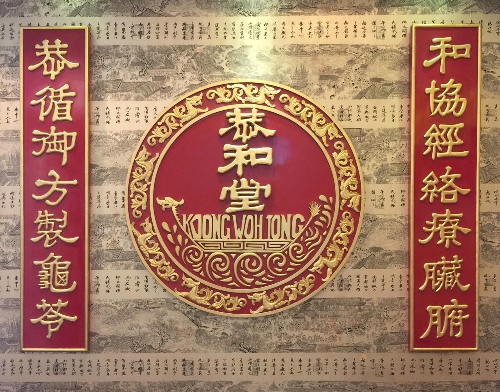 恭循御方製龜苓
恭和堂
KOONG WOH TONG
和協經絡療臟腑